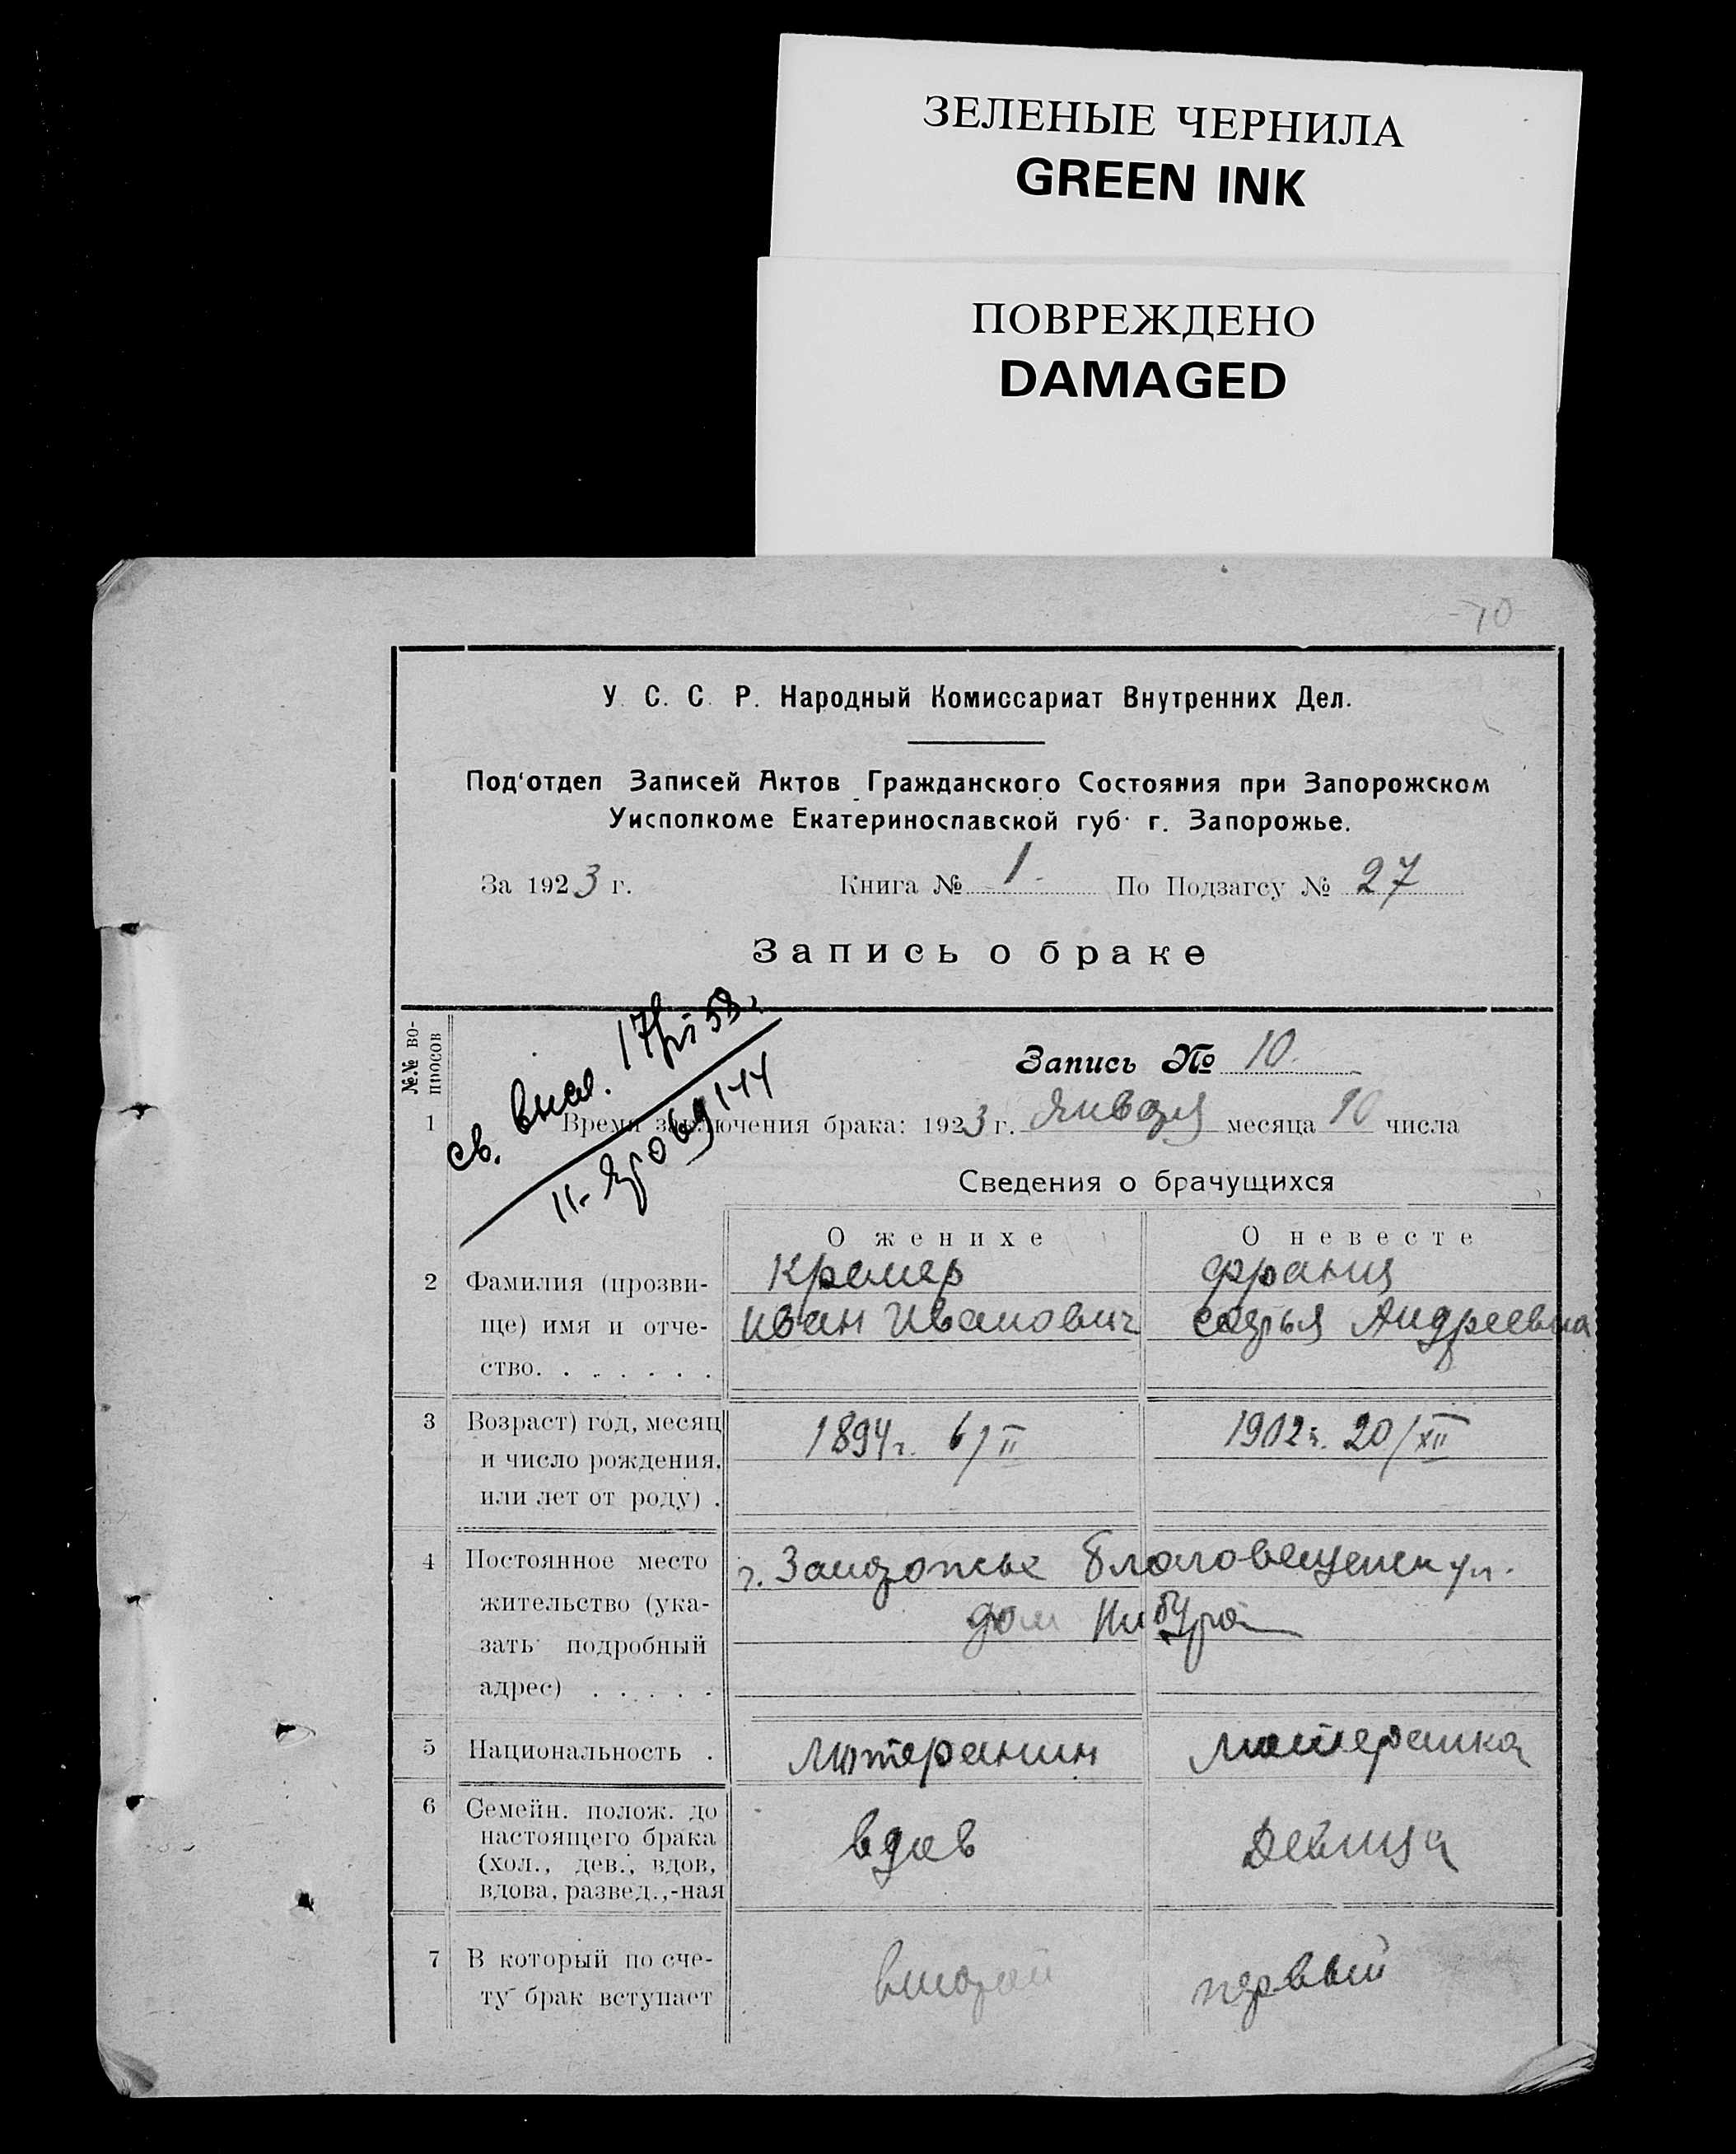 ЗЕЛЕНЫЕ ЧЕРНИЛА
GREEN INK
ПОВРЕЖДЕНО
DAMAGED
10
У. С. С. Р. Народный Комиссариат Внутренних Дел.
Под‘отдел Записей Актов Гражданского Состояния при Запорожском
Уисполкоме Екатеринославской губ. г. Запорожье.
За 1923 г. Книга № 1. По Подзагсу № 27
Запись о браке
№.№ во-
просов
Запись № 10.
св. выд.
1 Время заключения брака: 1923 г. Января месяца 10 числа
Сведения о брачущихся
О женихе О невесте
2 Фамилия (прозви- Кремер Франц
ще) имя и отче- Иван Иванович Софья Андреевна
ство. . . . . . .
3 Возраст) год, месяц 1894 г. 6/II 1902 г. 20/XII
и число рождения.
или лет от роду) .
4 Постоянное место г. Запорожье Благовещенск ул.
жительство (ука- дом Нибура
зать подробный
адрес) . . . . .
5 Национальность . Лютеранин Лютеранка
6 Семейн. полож. до
настоящего брака вдов Девица
(хол., дев., вдов,
вдова, развед.,-ная
7 В который по сче- второй первый
ту брак вступает